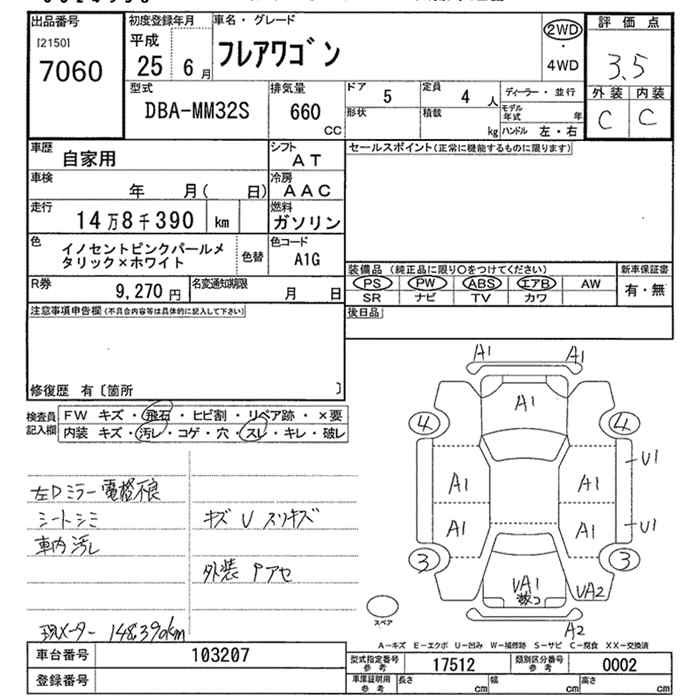 出品番号
[2150]
7060
初度登録年月
平成
25 6月
車名・グレード
フレアワゴン
2WD
・
4WD
評価点
3.5
外装 内装
C C
型式
DBA-MM32S
排気量
660
CC
ドア
5
定員
4人
形状
積載
kg
ディーラー・並行
モデル年式 年
ハンドル 左・右
車歴
自家用
シフト
AT
車検
年 月( 日)
冷房
AAC
走行
14万8千390 km
燃料
ガソリン
色
イノセントピンクパールメ
タリック×ホワイト
色替
色コード
A1G
R券
9,270円
名変通知期限
月 日
セールスポイント(正常に機能するものに限ります)
装備品 (純正品に限り○をつけてください)
PS PW ABS エアB AW
SR ナビ TV カワ
新車保証書
有・無
後日品
注意事項申告欄(不具合内容等は具体的に記入して下さい)
修復歴 有〔箇所 〕
検査員
記入欄
FW キズ・飛石・ヒビ割・リペア跡・×要
内装 キズ・汚レ・コゲ・穴・スレ・キレ・破レ
左Dミラー電格不良
シートシミ
車内汚レ
キズ U スリキズ
外装 Pアセ
現メーター 148,390km
A1 A1
A1
4 4
U1
A1 A1
A1 A1
U1
3 3
UA1
UA2
A2
スペア
A-キズ E-エクボ U-凹み W-補修跡 S-サビ C-腐食 XX-交換済
車台番号
103207
登録番号
型式指定番号
参考
17512
類別区分番号
参考
0002
車庫証明用
参考
長さ cm 幅 cm 高さ cm